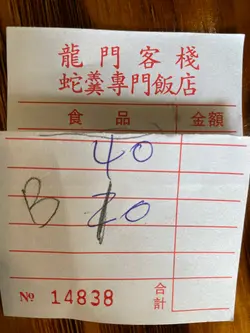 龍門客棧
蛇羹專門飯店
食品 金額
40
B 10
№ 14838 合計